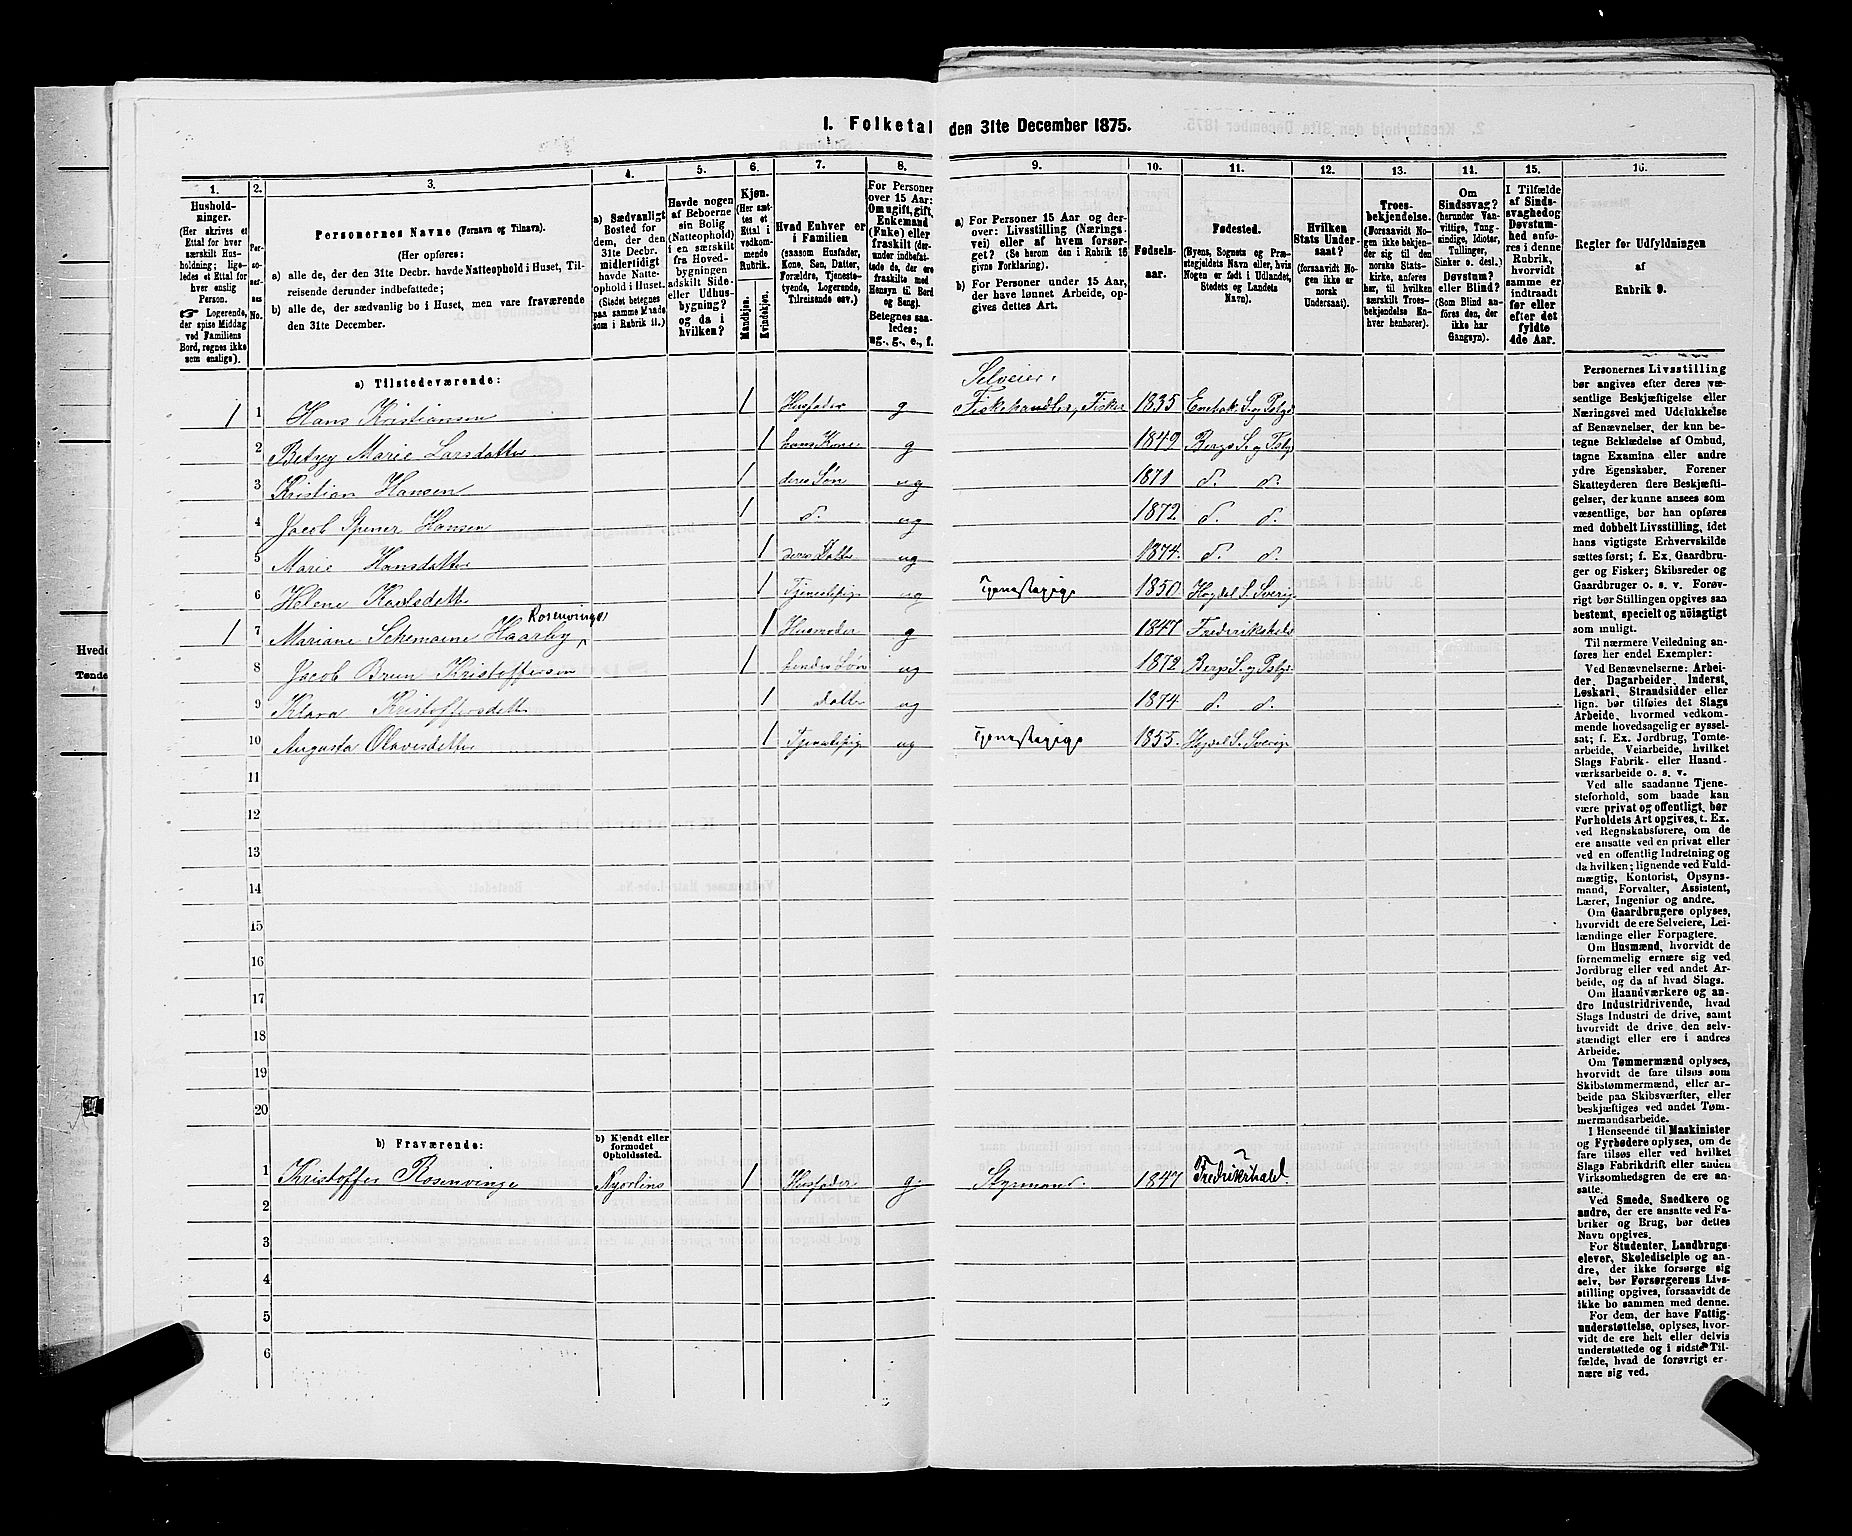 I. Folketal den 31te December 1875.
1. 2. 3. 4. 5. 6. 7. 8. 9. 10. 11. 12. 13. 14. 15. 16.
Hushold-
ninger.
(Her skrives et
Ettal for hver
særskilt Hus-
holdning; lige-
ledes et Ettal for
hver enslig
Person.
☞ Logerende,
der spise Middag
ved Familiens
Bord, regnes ikke
som enslige).
Per-
so-
ner-
nes
No.
Personernes Navne (Fornavn og Tilnavn).
(Her opføres:
a) alle de, der den 31te Decbr. havde Natteophold i Huset, Til-
reisende derunder indbefattede;
b) alle de, der sædvanlig bo i Huset, men vare fraværende
den 31te December.
a) Sædvanligt
Bosted for
dem, der den
31te Decbr.
midlertidigt
havde Natte-
ophold i Huset.
(Stedet betegnes
paa samme Maade
som i Rubrik 11.)
Havde nogen
af Beboerne
sin Bolig
(Natteophold)
i en særskilt
fra Hoved-
bygningen
adskilt Side-
eller Udhus-
bygning?
og da i
hvilken?
Kjøn.
(Her sæt-
tes et
Ettal i
vedkom-
mende
Rubrik.
Mandkjøn.
Kvindekjøn.
Hvad Enhver er
i Familien
(saasom Husfader,
Kone, Søn, Datter,
Forældre, Tjeneste-
tyende, Logerende,
Tilreisende osv.)
For Personer
over 15 Aar:
Om ugift, gift,
Enkemand
(Enke) eller
fraskilt (der-
under indbefat-
tede de, der ere
fraskilte med
Hensyn til Bord
og Seng).
Betegnes saa-
ledes:
ug., g., e., f.
a) For Personer 15 Aar og der-
over: Livsstilling (Nærings-
vei) eller af hvem forsør-
get? (Se herom den i Rubrik 16
givne Forklaring).
b) For Personer under 15 Aar,
der have lønnet Arbeide, op-
gives dettes Art.
Fødsels-
aar.
Fødested.
(Byens, Sognets og Præ-
stegjeldets Navn eller, hvis
Nogen er født i Udlandet,
Stedets og Landets
Navn).
Hvilken
Stats Under-
saat?
(forsaavidt No-
gen ikke er
norsk
Undersaat).
Troes-
bekjendelse.
(Forsaavidt No-
gen ikke bekjen-
der sig til den
norske Stats-
kirke, anføres
her, til hvilken
særskilt Troes-
bekjendelse En-
hver henhører).
Om
Sindssvag?
(herunder Van-
vittige, Tung-
sindige, Idioter,
Tullinger,
Sinker o. desl.)
Døvstum?
eller Blind?
(Som Blind an-
føres den, der
ikke har
Gangsyn).
I Tilfælde
af Sinds-
svaghed og
Døvstum-
hed anfø-
res i denne
Rubrik,
hvorvidt
samme er
indtraadt
før eller
efter det
fyldte
4de Aar.
Regler for Udfyldningen
af
Rubrik 9.
a) Tilstedeværende:
Selveier.
1 1 Hans Kristiansen 1 Husfader g Fiskehandler, Fisker 1835 Enebak S. og Pstgd
2 Betzy Marie Larsdatter 1 hans Kone g 1849 Bergs S. og Pstgd
3 Kristian Hansen 1 deres Søn ug 1871 d. d.
4 Jacob Spener Hansen 1 d. ug 1872 d. d.
5 Marie Hansdatter 1 deres Datter ug 1874 d. d.
6 Helene Karlsdatt 1 Tjenestepige ug Tjenestepige 1850 Hogdal S. Sverig
Rosenvinge
1 7 Mariane Schemaine Haarby 1 Husmoder g 1847 Frederikshald
8 Jacob Brun Kristoffersen 1 hendes Søn ug 1872 Bergs S. og Pstgd
9 Klara Kristoffersdatt 1 Datter ug 1874 d. d.
10 Augusta Olavesdatter 1 Tjenestepig ug Tjenestepige 1855 Hogdal S. Sverig
11
12
13
14
15
16
17
18
19
20
b) Fraværende:
b) Kjendt eller
formodet
Opholdssted.
1 Kristoffer Rosenvinge Nyorlins 1 Husfader g. Styrmand. 1847 Fredrikshald
2
3
4
5
6
Personernes Livsstilling
bør angives efter deres væ-
sentlige Beskjæftigelse eller
Næringsvei med Udelukkelse
af Benævnelser, der kun be-
tegne Beklædelse af Ombud,
tagne Examina eller andre
ydre Egenskaber. Forener
Skatteyderen flere Beskjæfti-
gelser, der kunne ansees som
væsentlige, bør han opføres
med dobbelt Livsstilling, idet
hans vigtigste Erhvervskilde
sættes først; f. Ex. Gaardbru-
ger og Fisker; Skibsreder og
Gaardbruger o. s. v. Forøv-
rigt bør Stillingen opgives saa
bestemt, specielt og nøiagtigt
som muligt.
Til nærmere Veiledning an-
føres her endel Exempler:
Ved Benævnelserne: Arbei-
der, Dagarbeider, Inderst,
Løskarl, Strandsidder eller
lign. bør tilføies det Slags
Arbeide, hvormed vedkom-
mende hovedsagelig er syssel-
sat; f. Ex. Jordbrug, Tomte-
arbeide, Veiarbeide, hvilket
Slags Fabrik- eller Haand-
værksarbeide o. s. v.
Ved alle saadanne Tjene-
steforhold, som baade kan
være privat og offentligt, bør
Forholdets Art opgives, t. Ex.
ved Regnskabsførere, om de
ere ansatte ved en privat eller
ved en offentlig Indretning og
da hvilken; lignende ved Fuld-
mægtig, Kontorist, Opsyns-
mand, Forvalter, Assistent,
Lærer, Ingeniør og andre.
Om Gaardbrugere oplyses,
hvorvidt de ere Selveiere, Lei-
lændinge eller Forpagtere.
Om Husmænd, hvorvidt de
fornemmelig ernære sig ved
Jordbrug eller ved andet Ar-
beide, og da af hvad Slags.
Om Haandværkere og an-
dre Industridrivende, hvad
Slags Industri de drive, samt
hvorvidt de drive den selv-
stændigt eller ere i andres
Arbeide.
Om Tømmermænd oplyses,
hvorvidt de fare tilsøs som
Skibstømmermænd, eller ar-
beide paa Skibsværfter, eller
beskjæftiges ved andet Tøm-
mermandsarbeide.
I Henseende til Maskinister
og Fyrbødere oplyses, om de
fare tilsøs eller ved hvilket
Slags Fabrikdrift eller anden
Virksomhedsgren de ere an-
satte.
Ved Smede, Snedkere og
andre, der ere ansatte ved Fa-
briker og Brug, bør dettes
Navn opgives.
For Studenter, Landbrugs-
elever, Skoledisciple og an-
dre, der ikke forsørge sig
selv, bør Forsørgerens Livs-
stilling opgives, forsaavidt de
ikke bo sammen med denne.
For dem, der have Fattig-
understøttelse, oplyses, hvor-
vidt de ere helt eller delvis
understøttede og i sidste Til-
fælde, hvad de forøvrigt er-
nære sig ved.
Hvede
Tønde